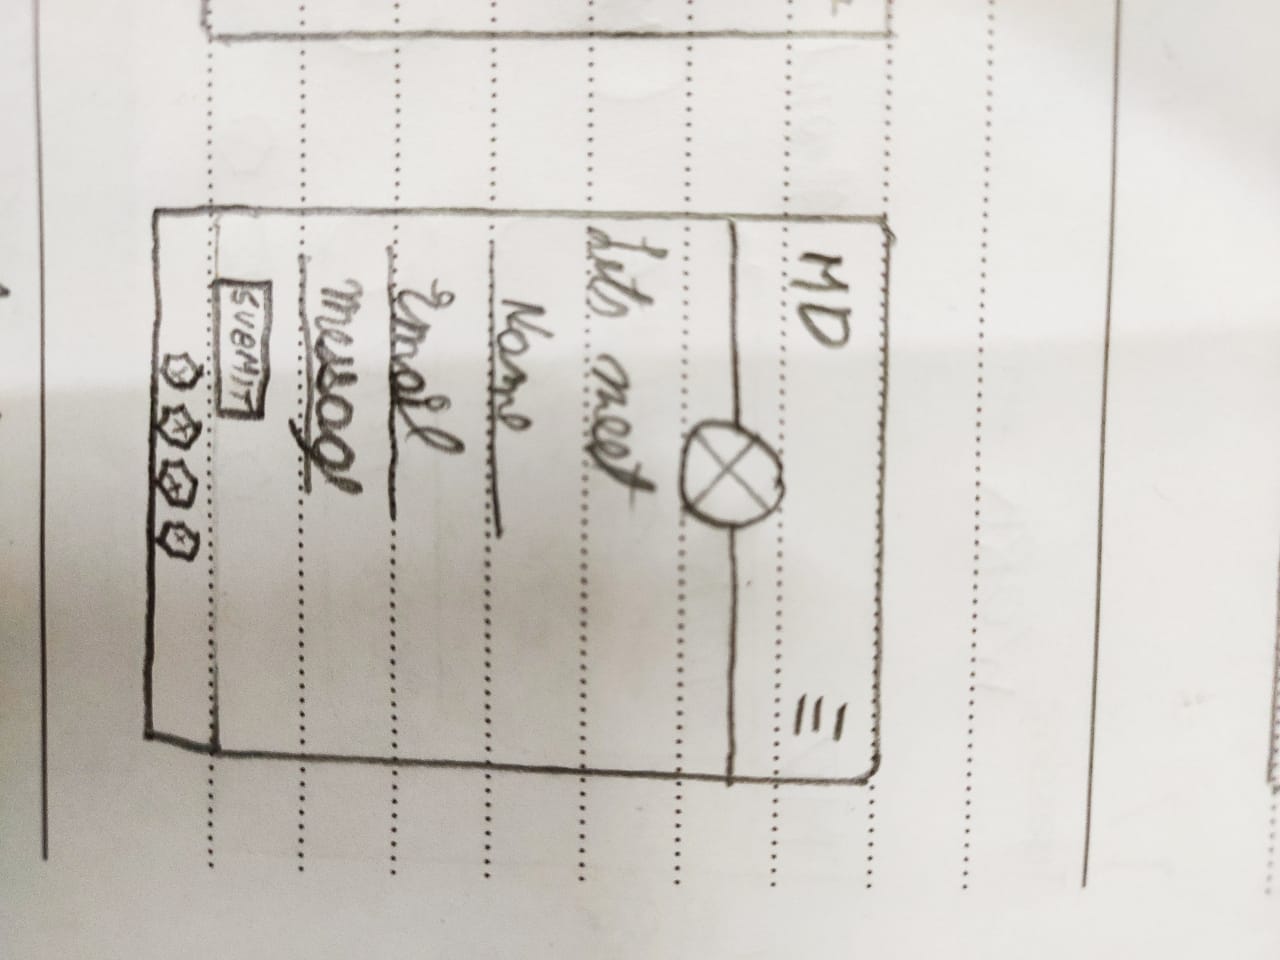 MD
Lets meet
Name
Email
Message
SUBMIT